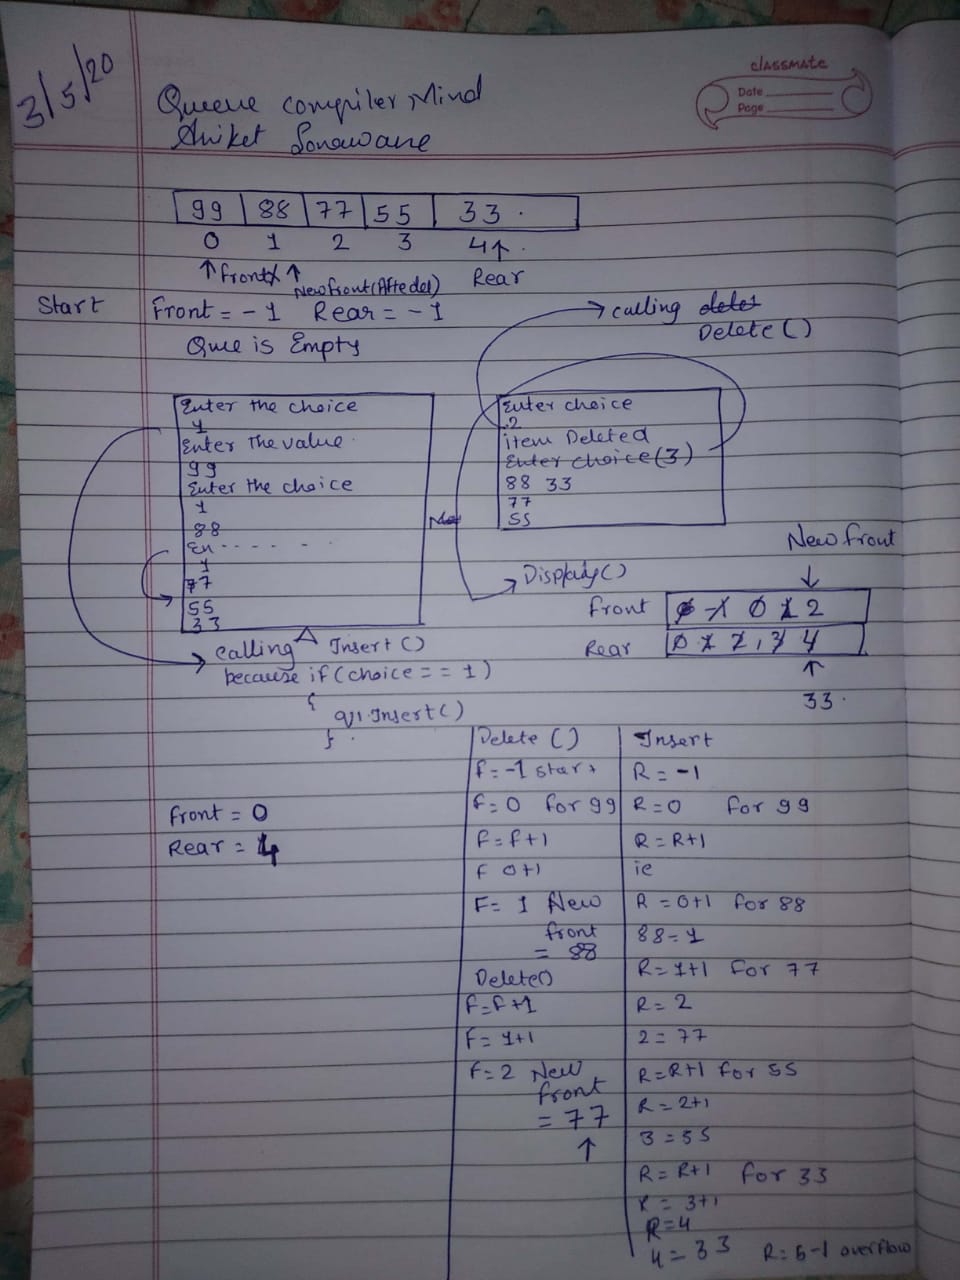 3/5/20
classmate
Date
Page
Queue compiler Mind
Aniket Sonawane
99 88 77 55 33
0 1 2 3 4
Front
New front (Afte del)
Rear
Start Front = -1 Rear = -1
Que is Empty
calling delet
Delete ()
Enter the choice
1
Enter The value
99
Enter the choice
1
88
En - - - - - -
1
77
55
33
Enter choice
2
item Deleted
Enter choice (3)
88 33
77
55
Display ()
New front
front 0 -1 0 1 2
Rear 0 1 2, 3 4
33
calling Insert ()
because if (choice = = 1)
{
q1. Insert ()
}
front = 0
Rear = 4
Delete ()
f = -1 start
f = 0 for 99
f = f+1
f 0+1
F = 1 New
front
= 88
Delete()
f = f+1
F = 1+1
F = 2 New
front
= 77
Insert
R = -1
R = 0 for 99
R = R+1
ie
R = 0+1 for 88
88 = 1
R = 1+1 for 77
R = 2
2 = 77
R = R+1 for 55
R = 2+1
3 = 55
R = R+1 for 33
R = 3+1
R = 4
4 = 33 R = 5-1 overflow